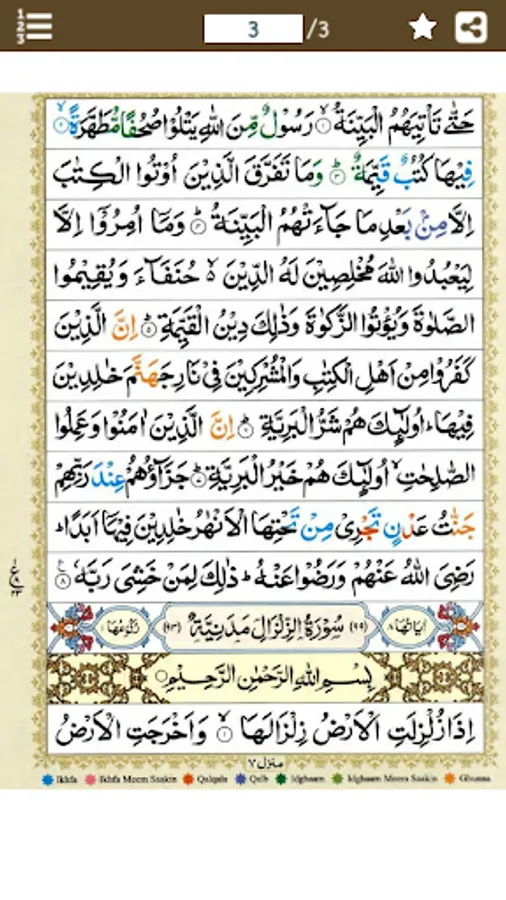 3 /3
حَتّٰى تَاْتِيَهُمُ الْبَيِّنَةُ ۙ﴿۱﴾ رَسُوْلٌ مِّنَ اللّٰهِ يَتْلُوْا صُحُفًا مُّطَهَّرَةً ۙ﴿۲﴾
فِيْهَا كُتُبٌ قَيِّمَةٌ ؕ﴿۳﴾ وَمَا تَفَرَّقَ الَّذِيْنَ اُوْتُوا الْكِتٰبَ
اِلَّا مِنْۢ بَعْدِ مَا جَآءَتْهُمُ الْبَيِّنَةُ ؕ﴿۴﴾ وَمَاۤ اُمِرُوْۤا اِلَّا
لِيَعْبُدُوا اللّٰهَ مُخْلِصِيْنَ لَهُ الدِّيْنَ ۙ۬ حُنَفَآءَ وَيُقِيْمُوا
الصَّلٰوةَ وَيُؤْتُوا الزَّكٰوةَ وَذٰلِكَ دِيْنُ الْقَيِّمَةِ ؕ﴿۵﴾ اِنَّ الَّذِيْنَ
كَفَرُوْا مِنْ اَهْلِ الْكِتٰبِ وَالْمُشْرِكِيْنَ فِيْ نَارِ جَهَنَّمَ خٰلِدِيْنَ
فِيْهَا ؕ اُولٰٓئِكَ هُمْ شَرُّ الْبَرِيَّةِ ؕ﴿۶﴾ اِنَّ الَّذِيْنَ اٰمَنُوْا وَعَمِلُوا
الصّٰلِحٰتِ ۙ اُولٰٓئِكَ هُمْ خَيْرُ الْبَرِيَّةِ ؕ﴿۷﴾ جَزَآؤُهُمْ عِنْدَ رَبِّهِمْ
جَنّٰتُ عَدْنٍ تَجْرِيْ مِنْ تَحْتِهَا الْاَنْهٰرُ خٰلِدِيْنَ فِيْهَاۤ اَبَدًا ؕ
رَضِيَ اللّٰهُ عَنْهُمْ وَرَضُوْا عَنْهُ ؕ ذٰلِكَ لِمَنْ خَشِيَ رَبَّهٗ ﴿۸﴾
اٰيَاتُهَا ۸ (۹۹) سُوْرَةُ الزِّلْزَالِ مَدَنِيَّةٌ (۹۳) رُكُوْعُهَا ۱
بِسْمِ اللّٰهِ الرَّحْمٰنِ الرَّحِيْمِ
اِذَا زُلْزِلَتِ الْاَرْضُ زِلْزَالَهَا ۙ﴿۱﴾ وَاَخْرَجَتِ الْاَرْضُ
منزل ۷
Ikhfa Ikhfa Meem Saakin Qalqala Qalb Idghaam Idghaam Meem Saakin Ghunna